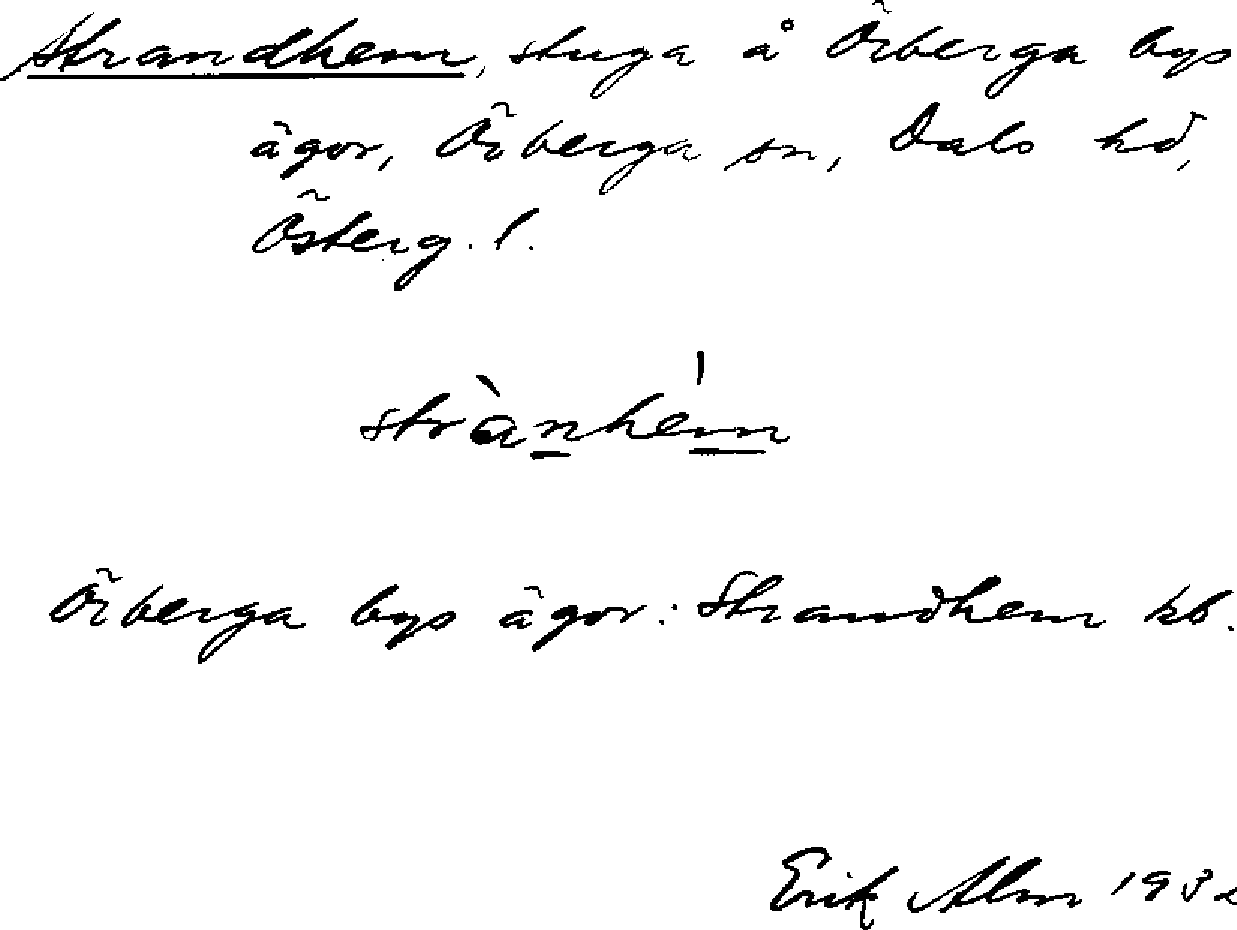 Strandhem, stuga å Örberga bys
ägor, Örberga sn, Dals hd,
Österg. l.
strànhe̍m
Örberga bys ägor: Strandhem kb.
Erik Alm 1932